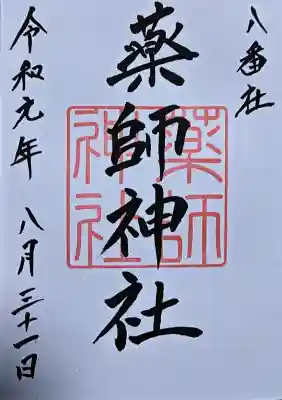 八番社
薬師神社
薬師
神社
令和元年 八月三十一日